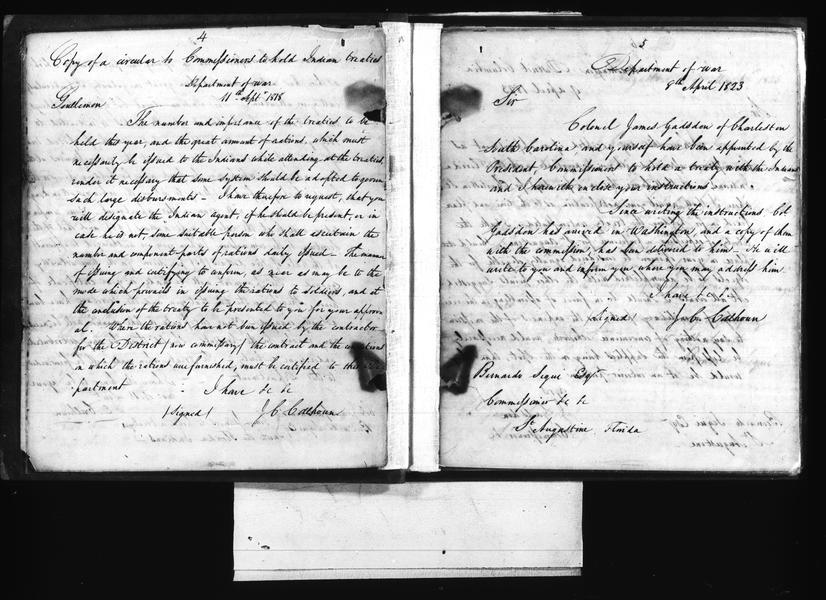 4
Copy of a circular to Commissioners to hold Indian treaties
Department of war
11th Sept 1818
Gentlemen
The number and importance of the treaties to be
held this year, and the great amount of rations, which must
necessarily be issued to the Indians while attending at the treaties,
render it necessary that some system should be adopted to govern
such large disbursments - I have therefore to request, that you
will designate the Indian agent, if he should be present, or in
case he is not, some suitable person who shall ascertain the
number and component parts of rations daily issued - The manner
of issuing and certifying to conform, as near as may be to the
mode which prevails in issuing the rations to soldiers, and at
the conclusion of the treaty to be presented to you for your approv
al. Where the rations have not been issued by the contractor
for the District / now commissary / the contract and the conditions
in which the rations are furnished, must be certified to this De
partment
I have &c &c
/ signed / J. C. Calhoun
5
Department of war
8th April 1823
Sir
Colonel James Gadsdon of Charleston
South Carolina and yourself have been appointed by the
President, Commissioners to hold a treaty with the Indians
and I herewith enclose your instructions
Since writing the instructions Col
Gadsdon has arrived in Washington, and a copy of them
with the commission, has been delivered to him - He will
write to you and inform you where you may address him
I have &c &c
signed / J. C. Calhoun
Bernardo Segue Esqr
Commissioner &c &c
St Augustine Florida